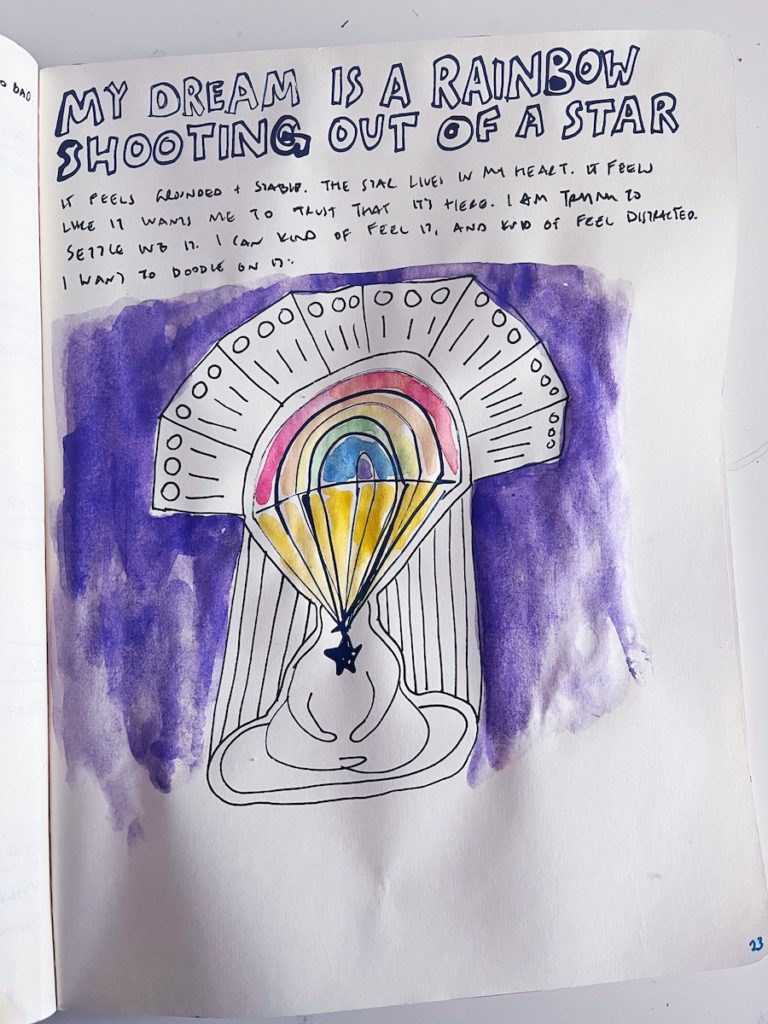 O BAD.
MY DREAM IS A RAINBOW
SHOOTING OUT OF A STAR
IT FEELS GROUNDED + STABLE. THE STAR LIVES IN MY HEART. IT FEELS
LIKE IT WANTS ME TO TRUST THAT IT'S HERE. I AM TRYING TO
SETTLE INTO IT. I CAN KIND OF FEEL IT, AND KIND OF FEEL DISTRACTED.
I WANT TO DOODLE ON IT.
23